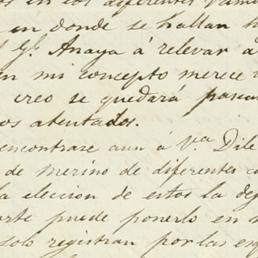 en los diferentes
en donde se hallan
Gl Anaya á relevar á
en mi concepto merece
creo se quedará
os atentados.
encontrase aun á Va Dile
de merino de diferentes
la eleccion de estos la de
orte puede ponerlo en
solo registran por las